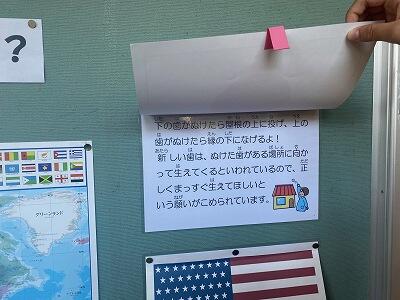 ?
下の歯がぬけたら屋根の上に投げ、上の
歯がぬけたら縁の下になげるよ!
新しい歯は、ぬけた歯がある場所に向か
って生えてくるといわれているので、正
しくまっすぐ生えてほしいと
いう願いがこめられています。
グリーンランド